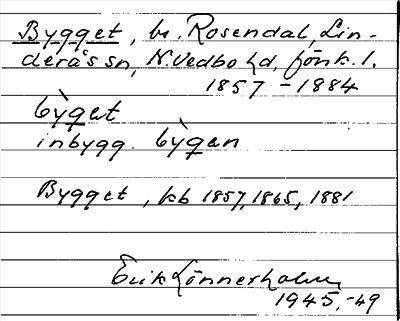 Bygget, br. Rosendal, Lin-
derås sn, N. Vedbo hd, Jönk. l.
1857-1884
bỳget
inbygg. bỳgen
Bygget, kb 1857, 1865, 1881
Erik Lönnerholm
1945,-49